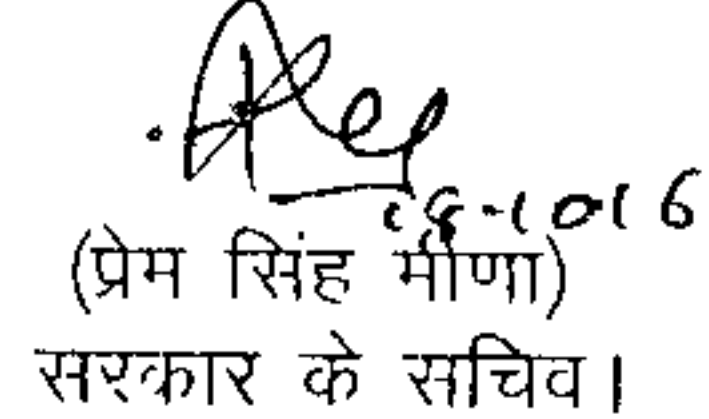 18-10-16
(प्रेम सिंह मीणा)
सरकार के सचिव।